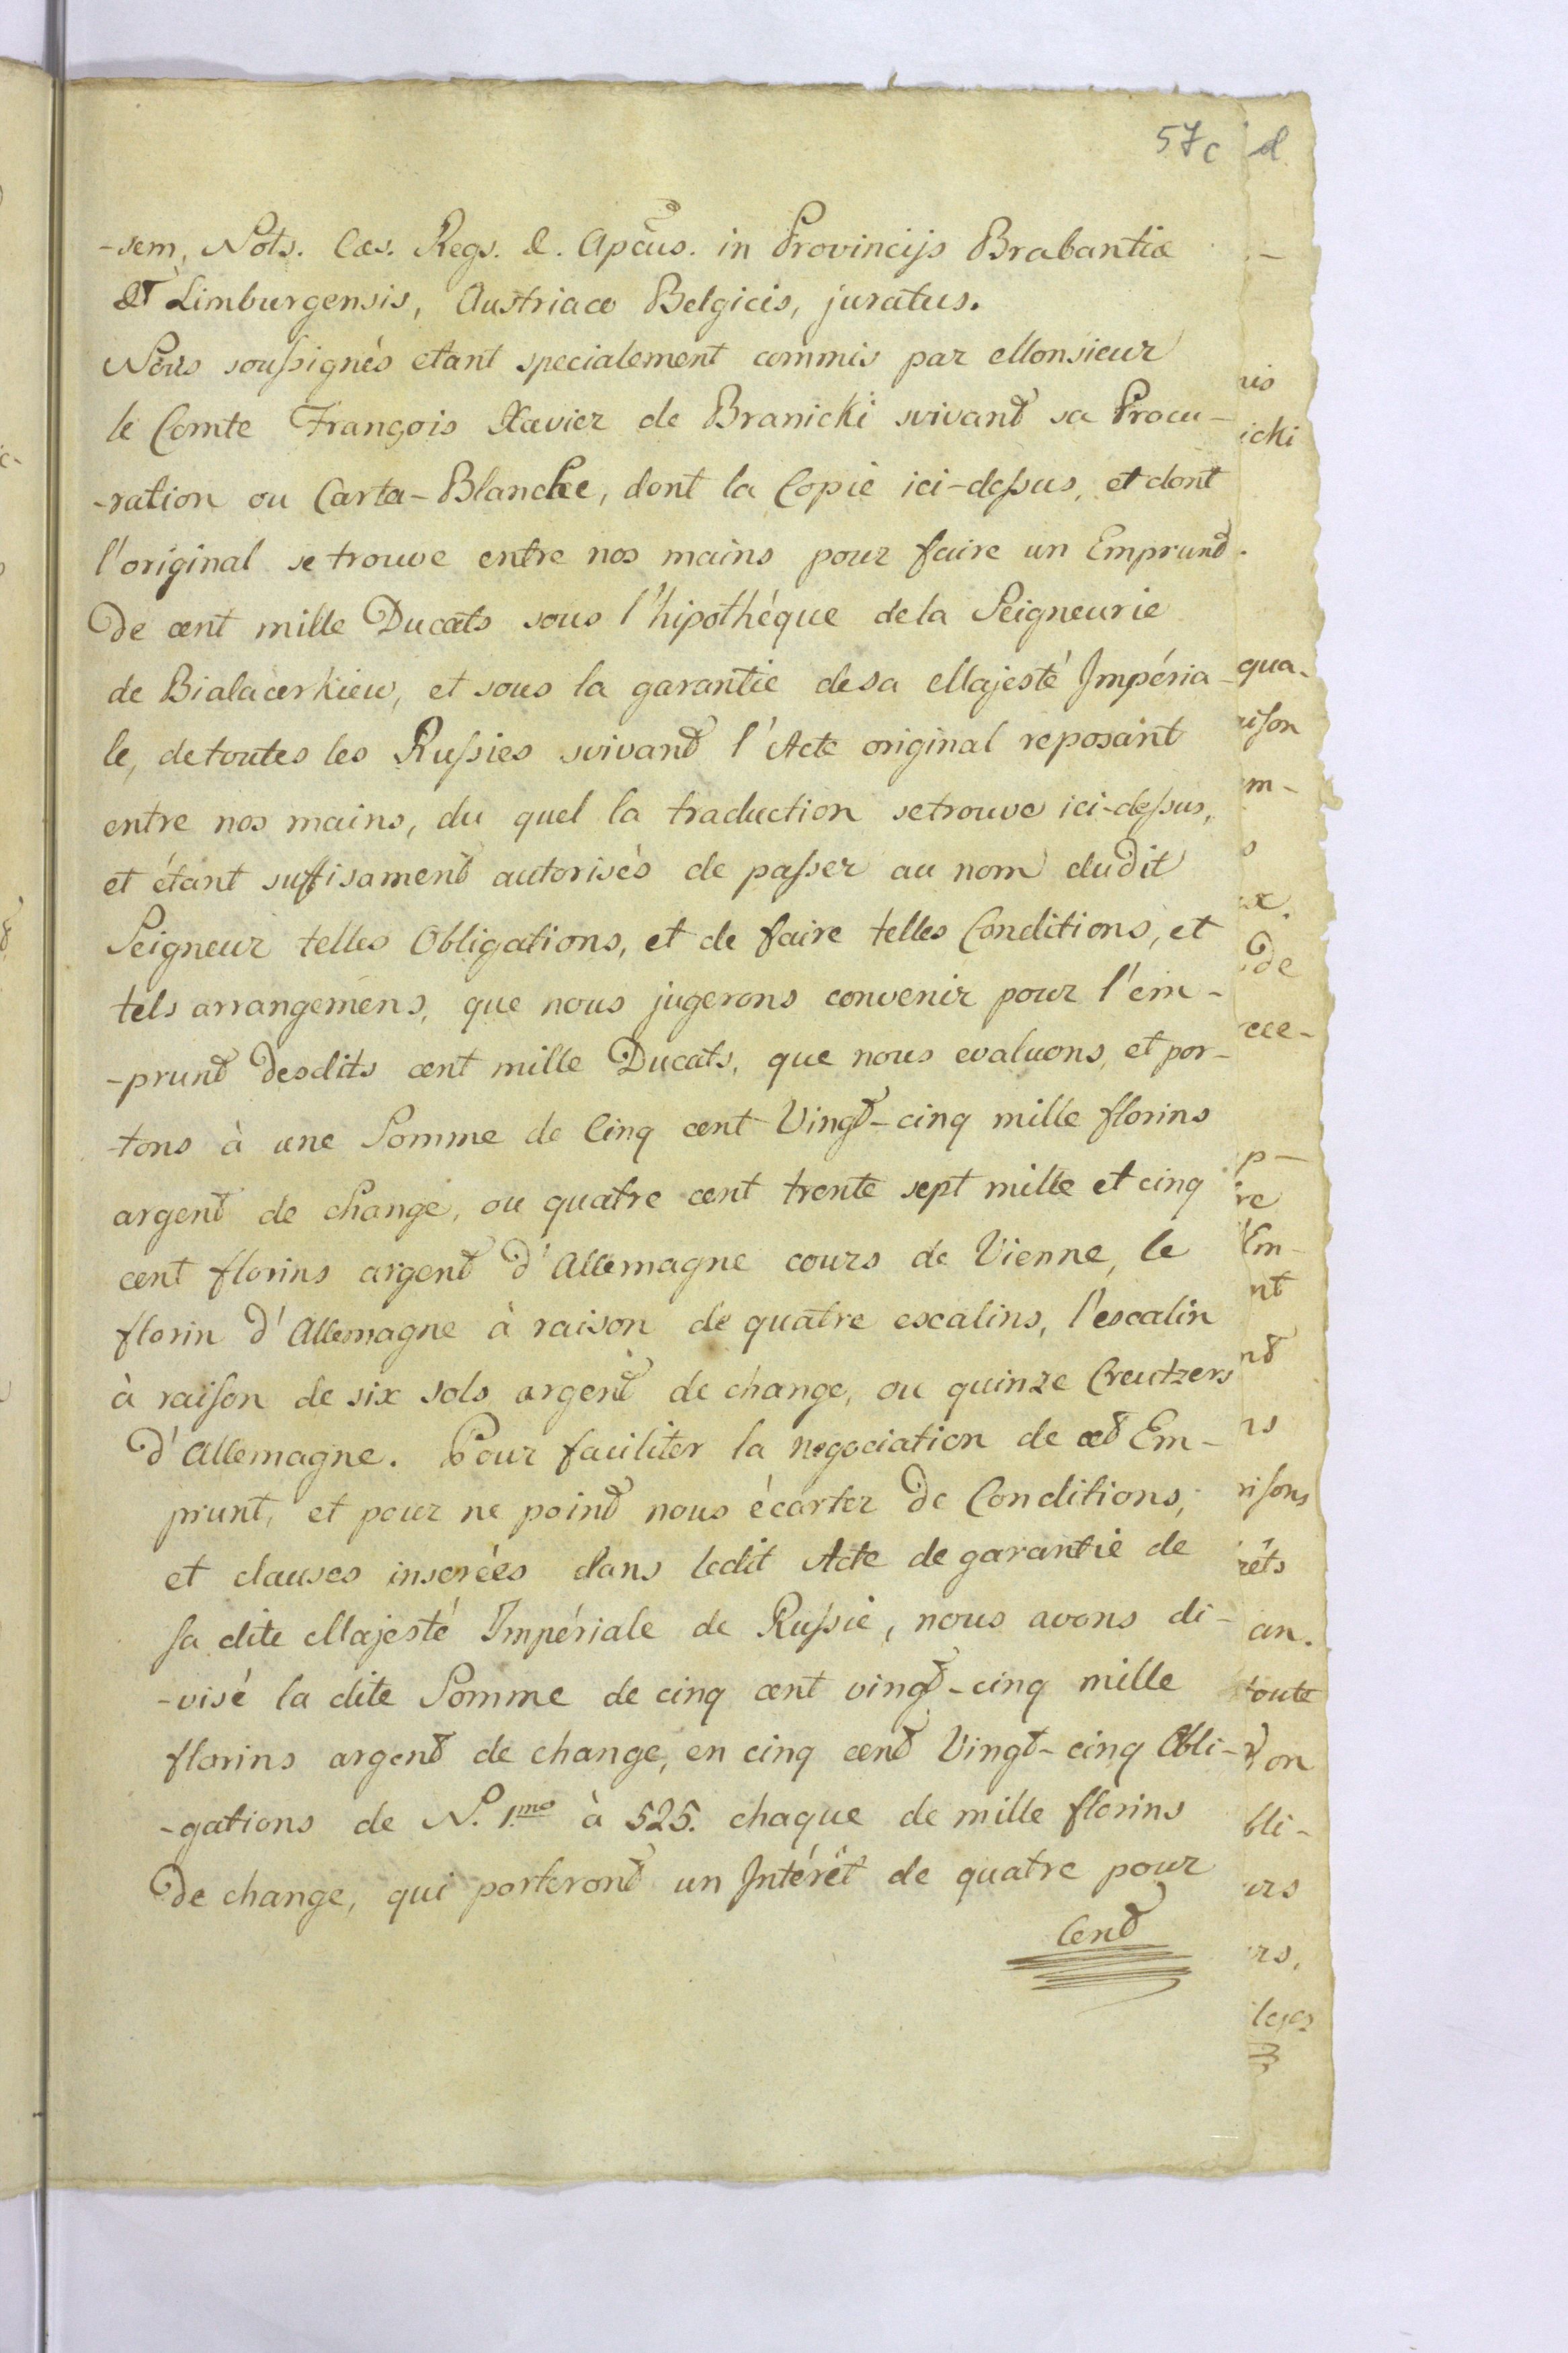 57c d
-sem, Nots. Cæs. Regs. & Apcũs. in Provincijs Brabantiæ
et Limburgensis, Austriaco Belgicis, juratus.
Nous soussignés etant specialement commis par Monsieur
le Comte François Xavier de Branicki suivant sa Procu-
-ration ou Carta-Blanche, dont la Copie ici-dessus, et dont
l'original se trouve entre nos mains pour faire un Emprunt
de cent mille Ducats sous l'hipothéque de la Seigneurie
de Bialacerkiew, et sous la garantie de sa Majesté Impéria-
le, de toutes les Russies suivant l'Acte original reposant
entre nos mains, du quel la traduction se trouve ici-dessus,
et étant suffisament autorisés de passer au nom dudit
Seigneur telles Obligations, et de faire telles Conditions, et
tels arrangemens, que nous jugerons convenir pour l'em-
-prunt desdits cent mille Ducats, que nous evaluons, et por-
-tons à une Somme de Cinq cent Vingt-cinq mille florins
argent de change, ou quatre cent trente sept mille et cinq
cent florins argent d'Allemagne cours de Vienne, le
florin d'Allemagne à raison de quatre escalins, l'escalin
à raison de six sols argent de change, ou quinze Creutzers
d'Allemagne. Pour faciliter la negociation de cet Em-
prunt, et pour ne point nous écarter de Conditions,
et clauses inserées dans ledit Acte de garantie de
sa dite Majesté Impériale de Russie, nous avons di-
-visé la dite Somme de cinq cent vingt-cinq mille
florins argent de change, en cinq cent Vingt-cinq Obli-
-gations de N. 1.mo à 525. chaque de mille florins
de change, qui porteront un Intérêt de quatre pour
Cent